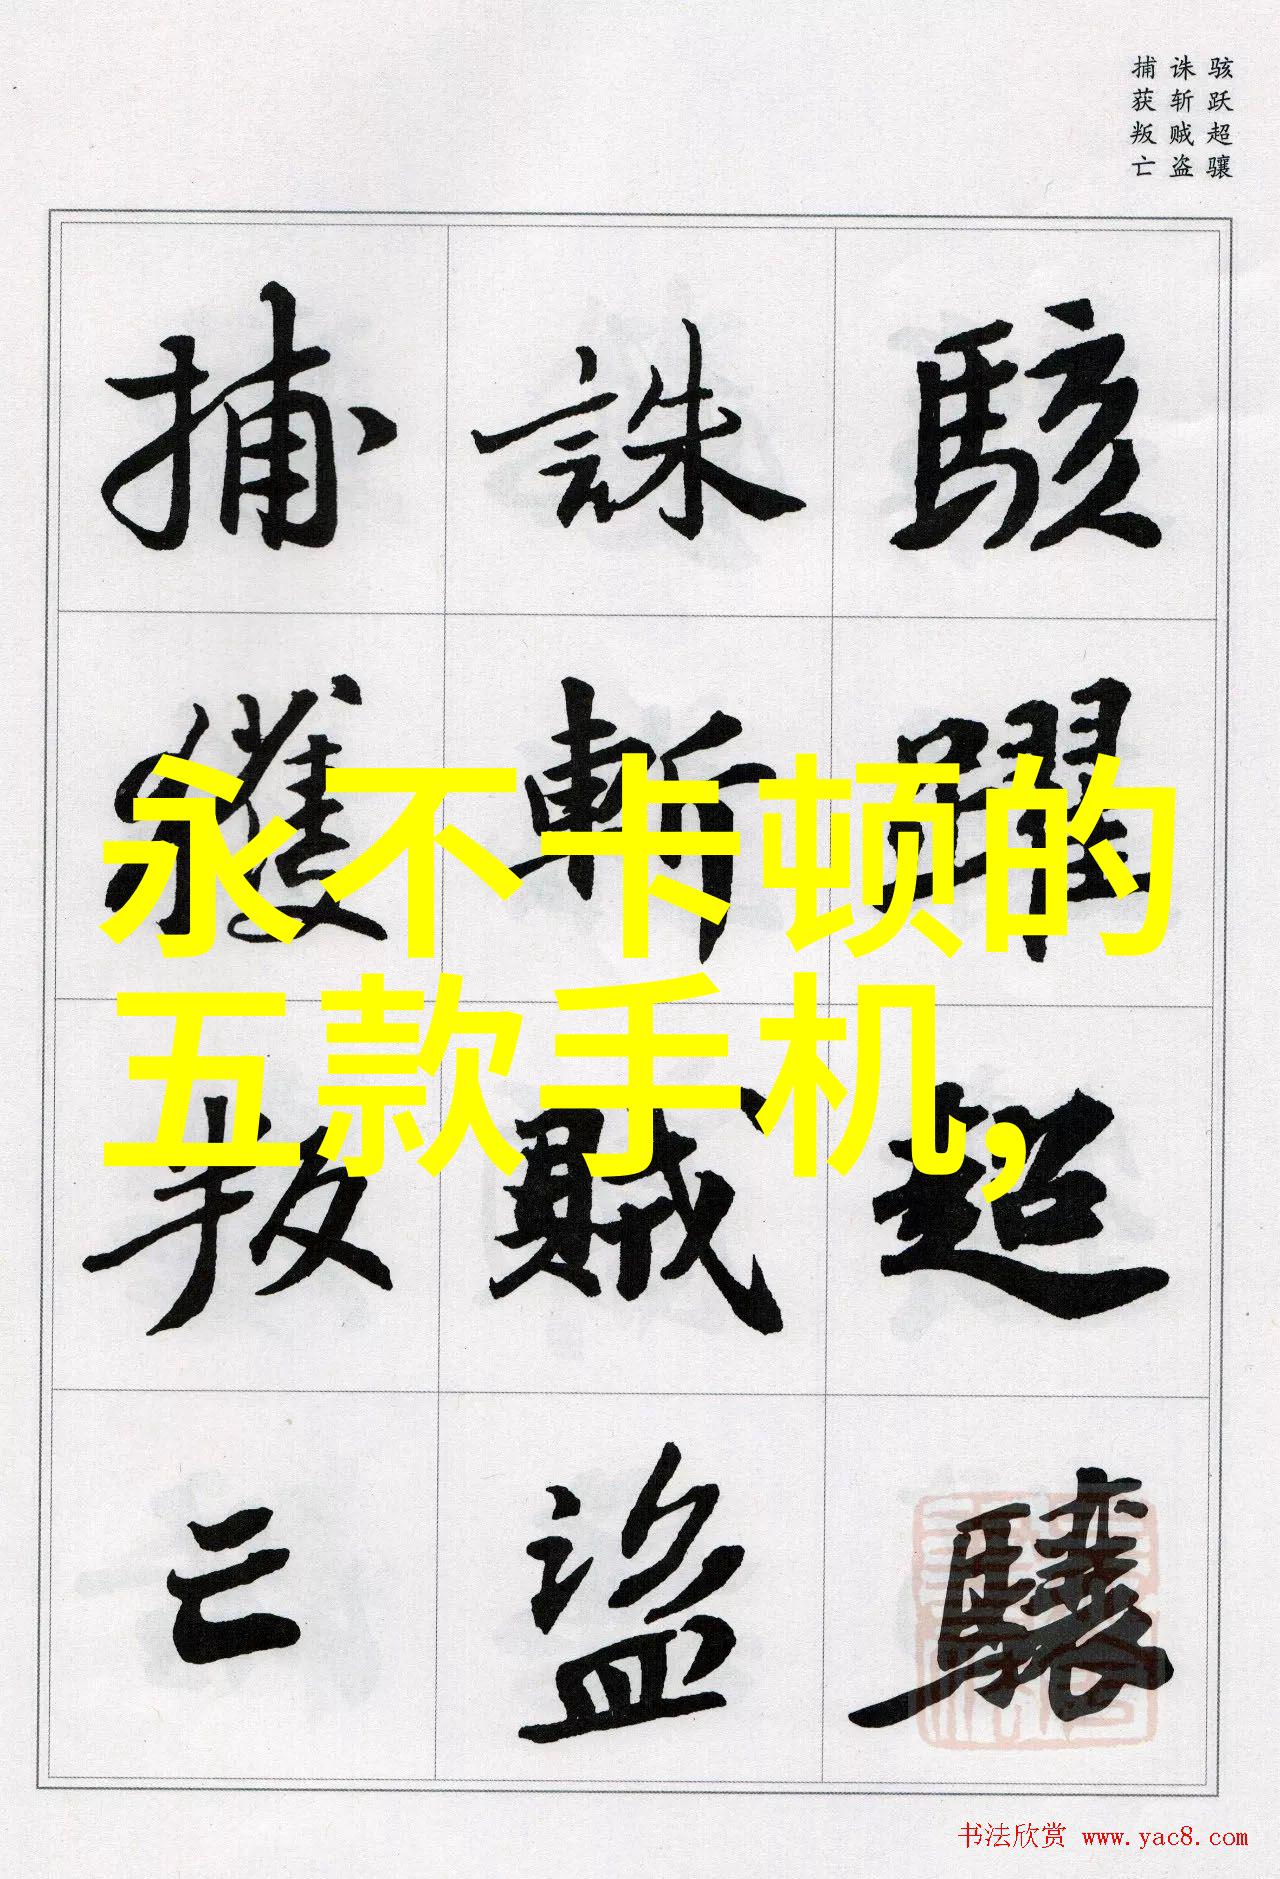 骇跃超骧
诛斩贼盗
捕获叛亡
駭躍超驤
誅斬賊盜
捕獲叛亡
永不卡顿的
五款手机,
书法欣赏 www.yac8.com